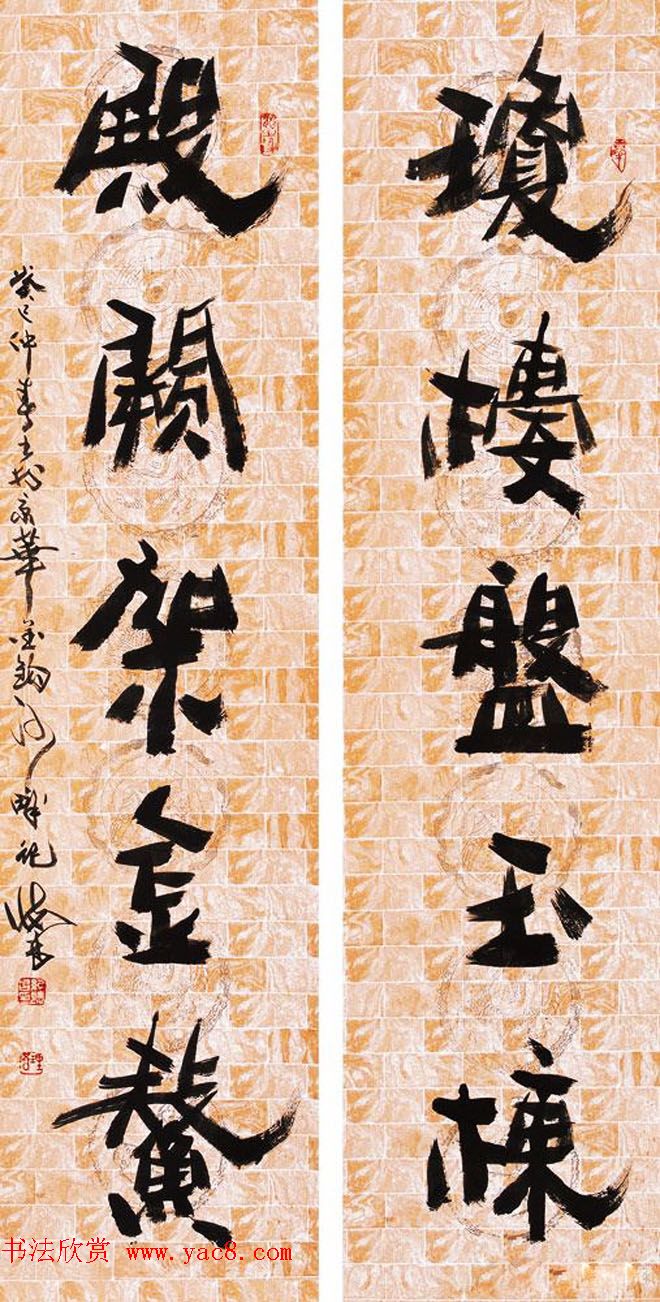 瓊樓盤玉棟
殿闕架金鰲
癸巳仲春书於京華
书法欣赏 www.yac8.com